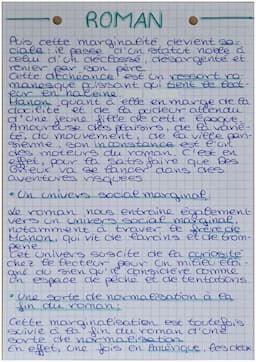 ROMAN
Puis cette marginalité devient so-
ciale : il passe d'un statut noble à
celui d'un déclassé, désargenté et
renier par son père.
Cette déchéance est un ressort ro-
manesque puissant qui tient le lect-
eur en haleine.
Manon quant à elle en marge de la
docilité et de la pudeur attendu
d'une jeune fille de cette époque.
Amoureuse des plaisirs, de la varié-
té, du mouvement, de la ville pari-
sienne, son inconstance est l'un
des moteurs du roman. C'est en
effet, pour la satisfaire que Des
Grieux va se lancer dans des
aventures risquées
• Un univers social marginal
Le roman nous entraîne également
vers un univers social marginal,
notamment à travers le frère de
Manon, qui vit de larcins et de trom-
perie.
Cet univers suscite de la curiosité
chez le lecteur pour un milieu éloi-
gné du sien qu'il considère comme
un espace de péché et de tentations.
• Une sorte de normalisation à la
fin du roman:
Cette marginalisation est toutefois
suivie à la fin du roman d'une
sorte de normalisation
En effet, une fois en Amérique, les deux